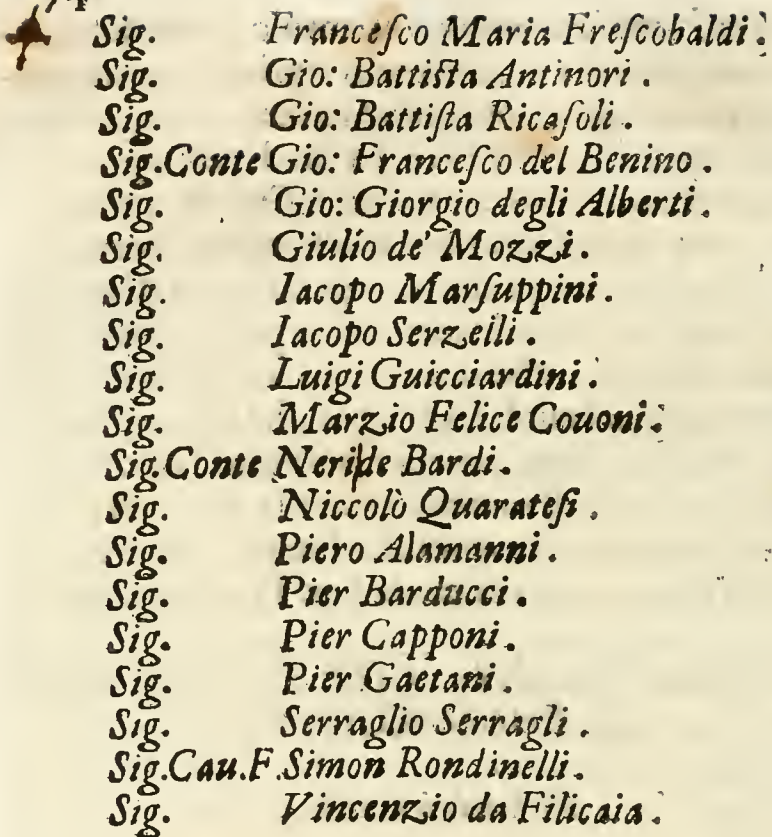 Sig. Franceſco Maria Freſcobaldi.
Sig. Gio: Battiſta Antinori.
Sig. Gio: Battiſta Ricaſoli.
Sig. Conte Gio: Franceſco del Benino.
Sig. Gio: Giorgio degli Alberti.
Sig. Giulio de' Mozzi.
Sig. Iacopo Marſuppini.
Sig. Iacopo Serzelli.
Sig. Luigi Guicciardini.
Sig. Marzio Felice Couoni.
Sig. Conte Neri de Bardi.
Sig. Niccolò Quarateſi.
Sig. Piero Alamanni.
Sig. Pier Barducci.
Sig. Pier Capponi.
Sig. Pier Gaetani.
Sig. Serraglio Serragli.
Sig. Cau. F. Simon Rondinelli.
Sig. Vincenzio da Filicaia.